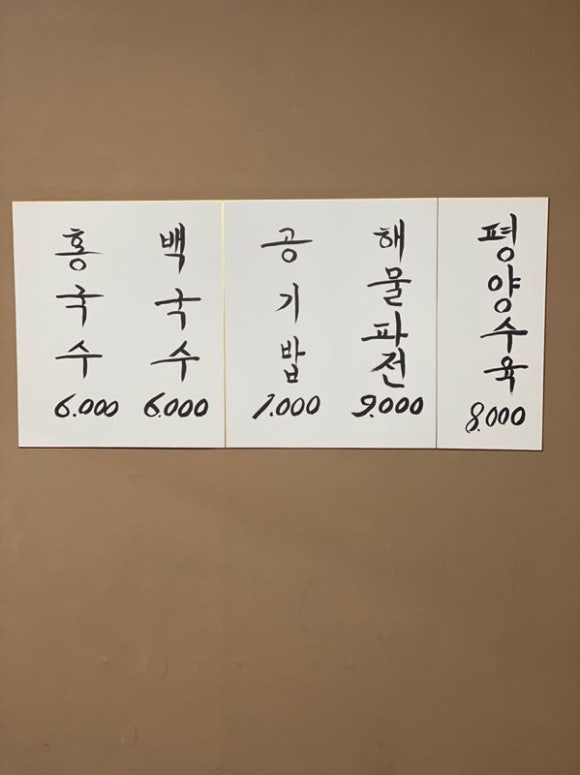 홍국수
6.000
백국수
6.000
공기밥
1.000
해물파전
9.000
평양수육
8.000